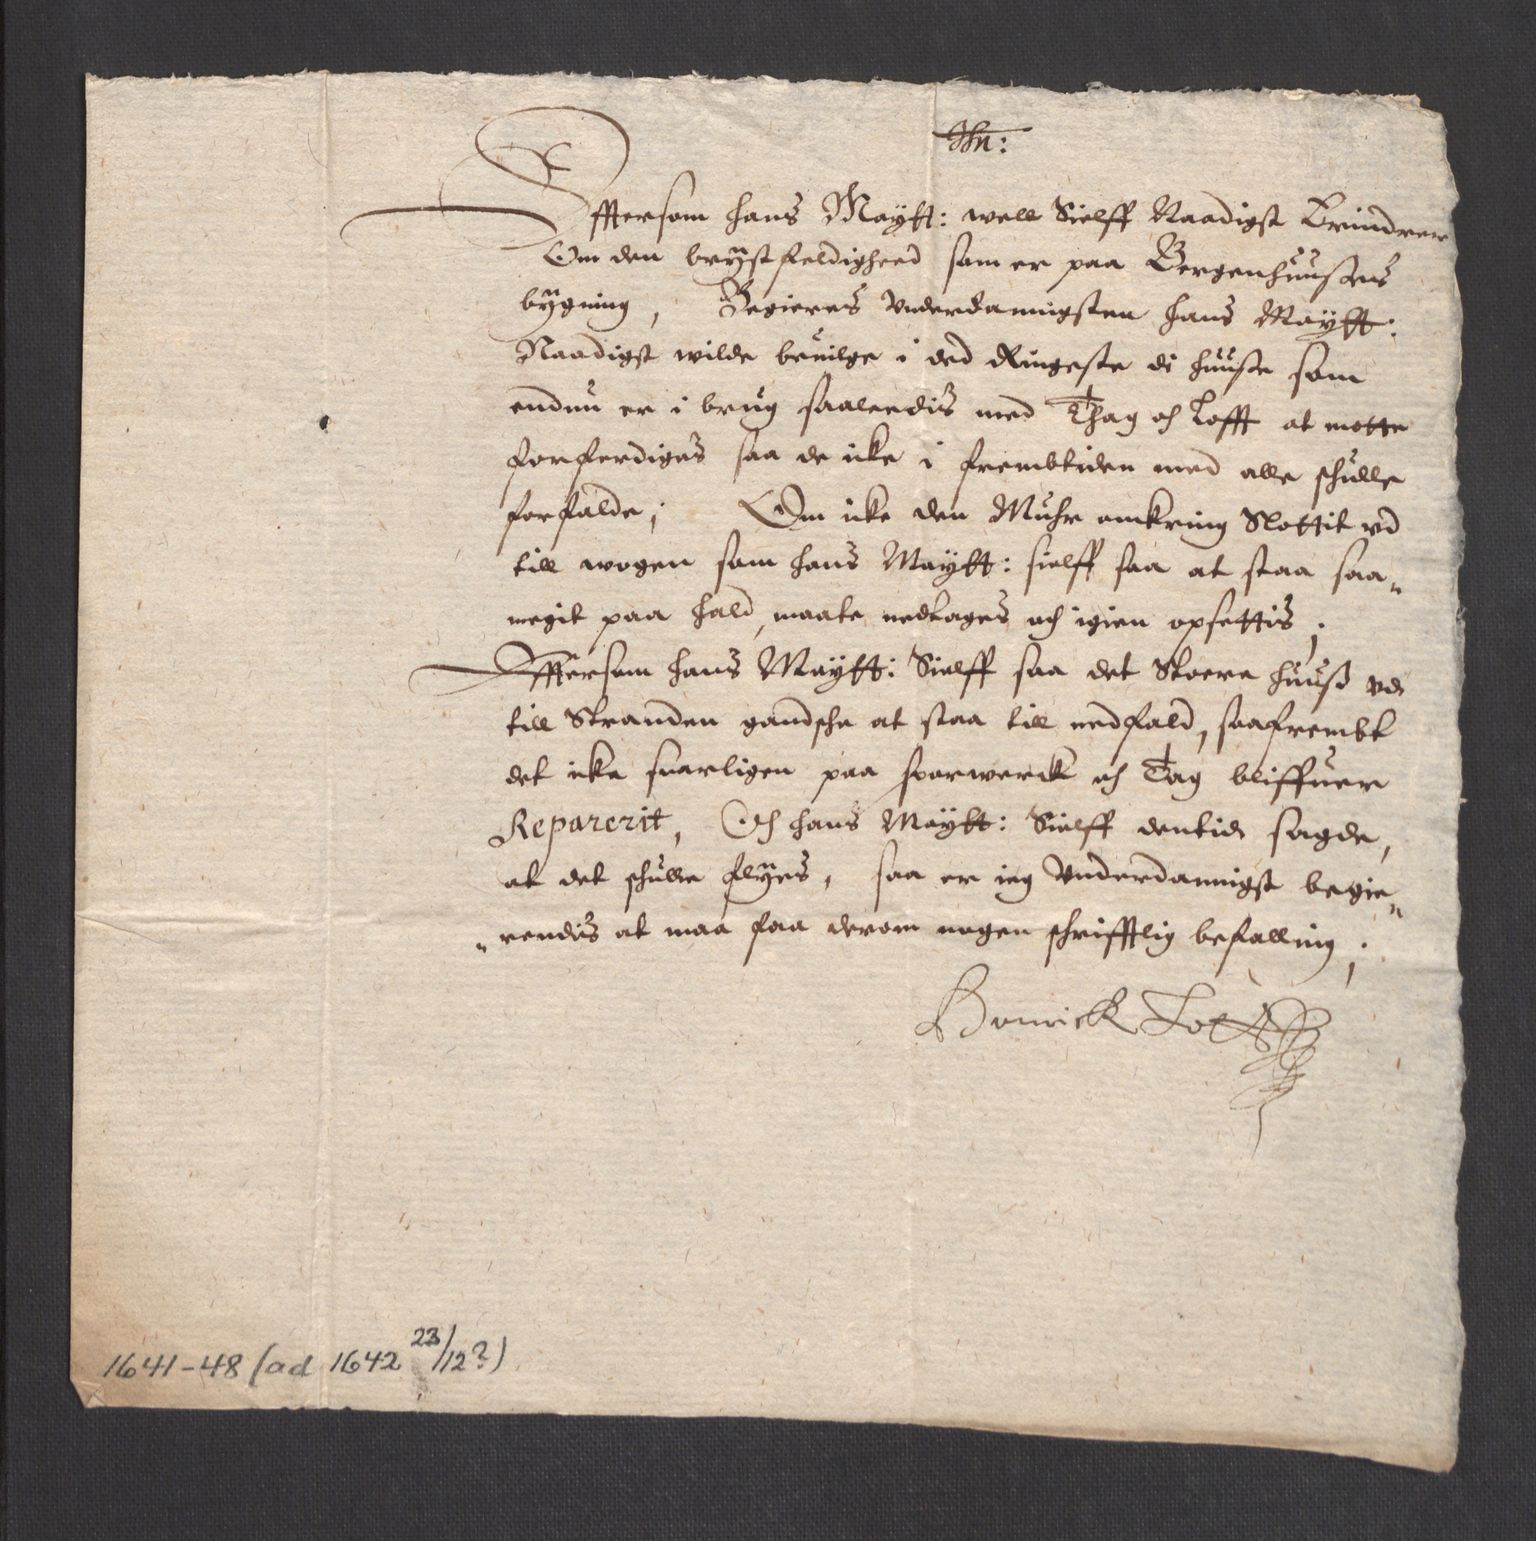 Jhn:
Effttersom hans Maÿtt: well Sielff Naadigst Erindrer
Om den brÿstfeldigheed som er paa Bergenhuußens
bÿgning, Begieres Vnderdannigsten hans Maÿtt:
Naadigst wilde beuilge i ded Ringeste di huuße som
endnu er i brug saaleedis med Thag och Lofft at motte
forferdiges saa de icke i frembtiden med alle schulle
forfalde, Om icke den Muhr omkring Slottit vd
till wogen som hans Maÿtt: sielff saa at staa saa„
megit paa hald, maate nedtages och igien opsettis,
Effttersom hans Maÿtt: Sielff saa det Stoere huuß vdi
till Stranden gandsche at staa till nedfald, saafrembt
det icke snarligen paa sparwerck och Tag bliffuer
Reparerit, Och hans Maÿtt: Sielff dentid sagde,
at det schulle flÿes, saa er ieg Vnderdannigst begie„
„rendis at maa faa derom nogen schrifftlig befalling,
Henrick Tott
1641-48 (ad 1642 23/12?)